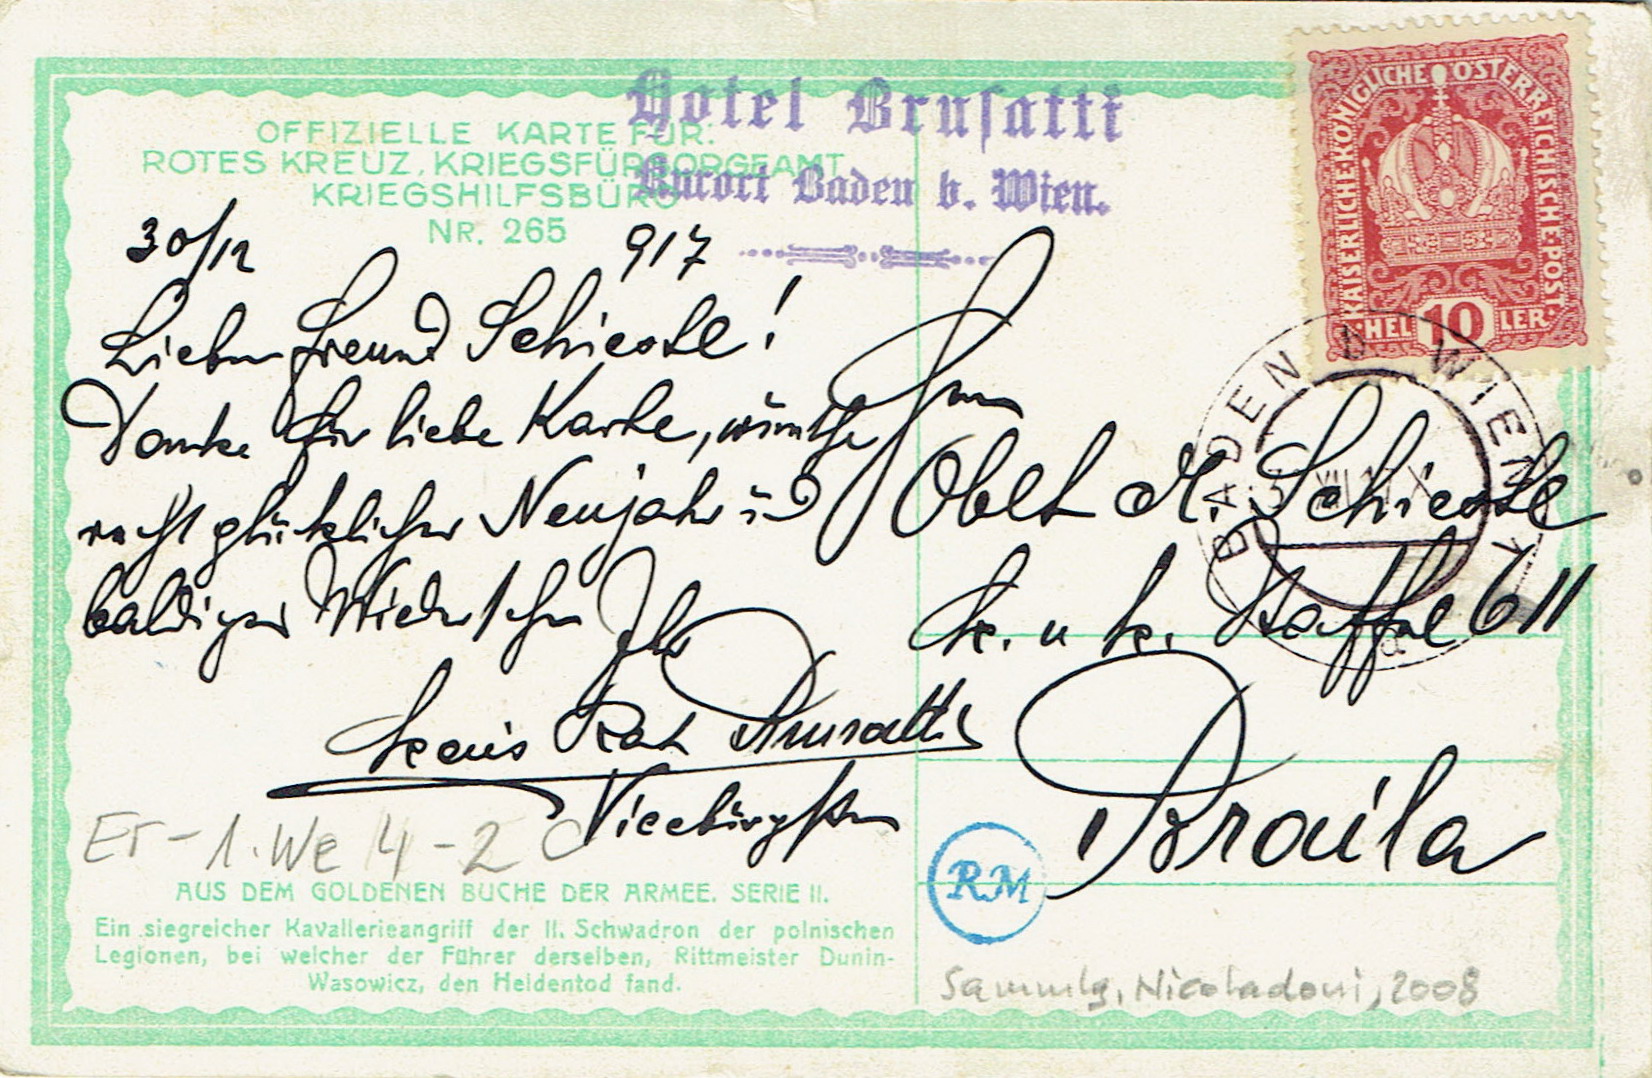 OFFIZIELLE KARTE FÜR:
ROTES KREUZ, KRIEGSFÜRSORGEAMT
KRIEGSHILFSBÜRO
NR. 265
Hotel Brusatti
Kurort Baden b. Wien.
KAISERLICHE KÖNIGLICHE ÖSTERREICHISCHE POST
HEL 10 LER
BADEN b. WIEN 1
30/12 917
Lieber Freund Schiestl!
Danke für liebe Karte, wünsche
recht glückliches Neujahr u
baldiges Wiedersehen Ihr
kais Rat Brusatti
Vicebürgstr
Oblt M. Schiestl
k. u k. Staffel 611
Braila
RM
Er-1.We 14-2
AUS DEM GOLDENEN BUCHE DER ARMEE. SERIE II.
Ein siegreicher Kavallerieangriff der II. Schwadron der polnischen
Legionen, bei welcher der Führer derselben, Rittmeister Dunin-
Wasowicz, den Heldentod fand.
Sammlg. Nicoladoni, 2008